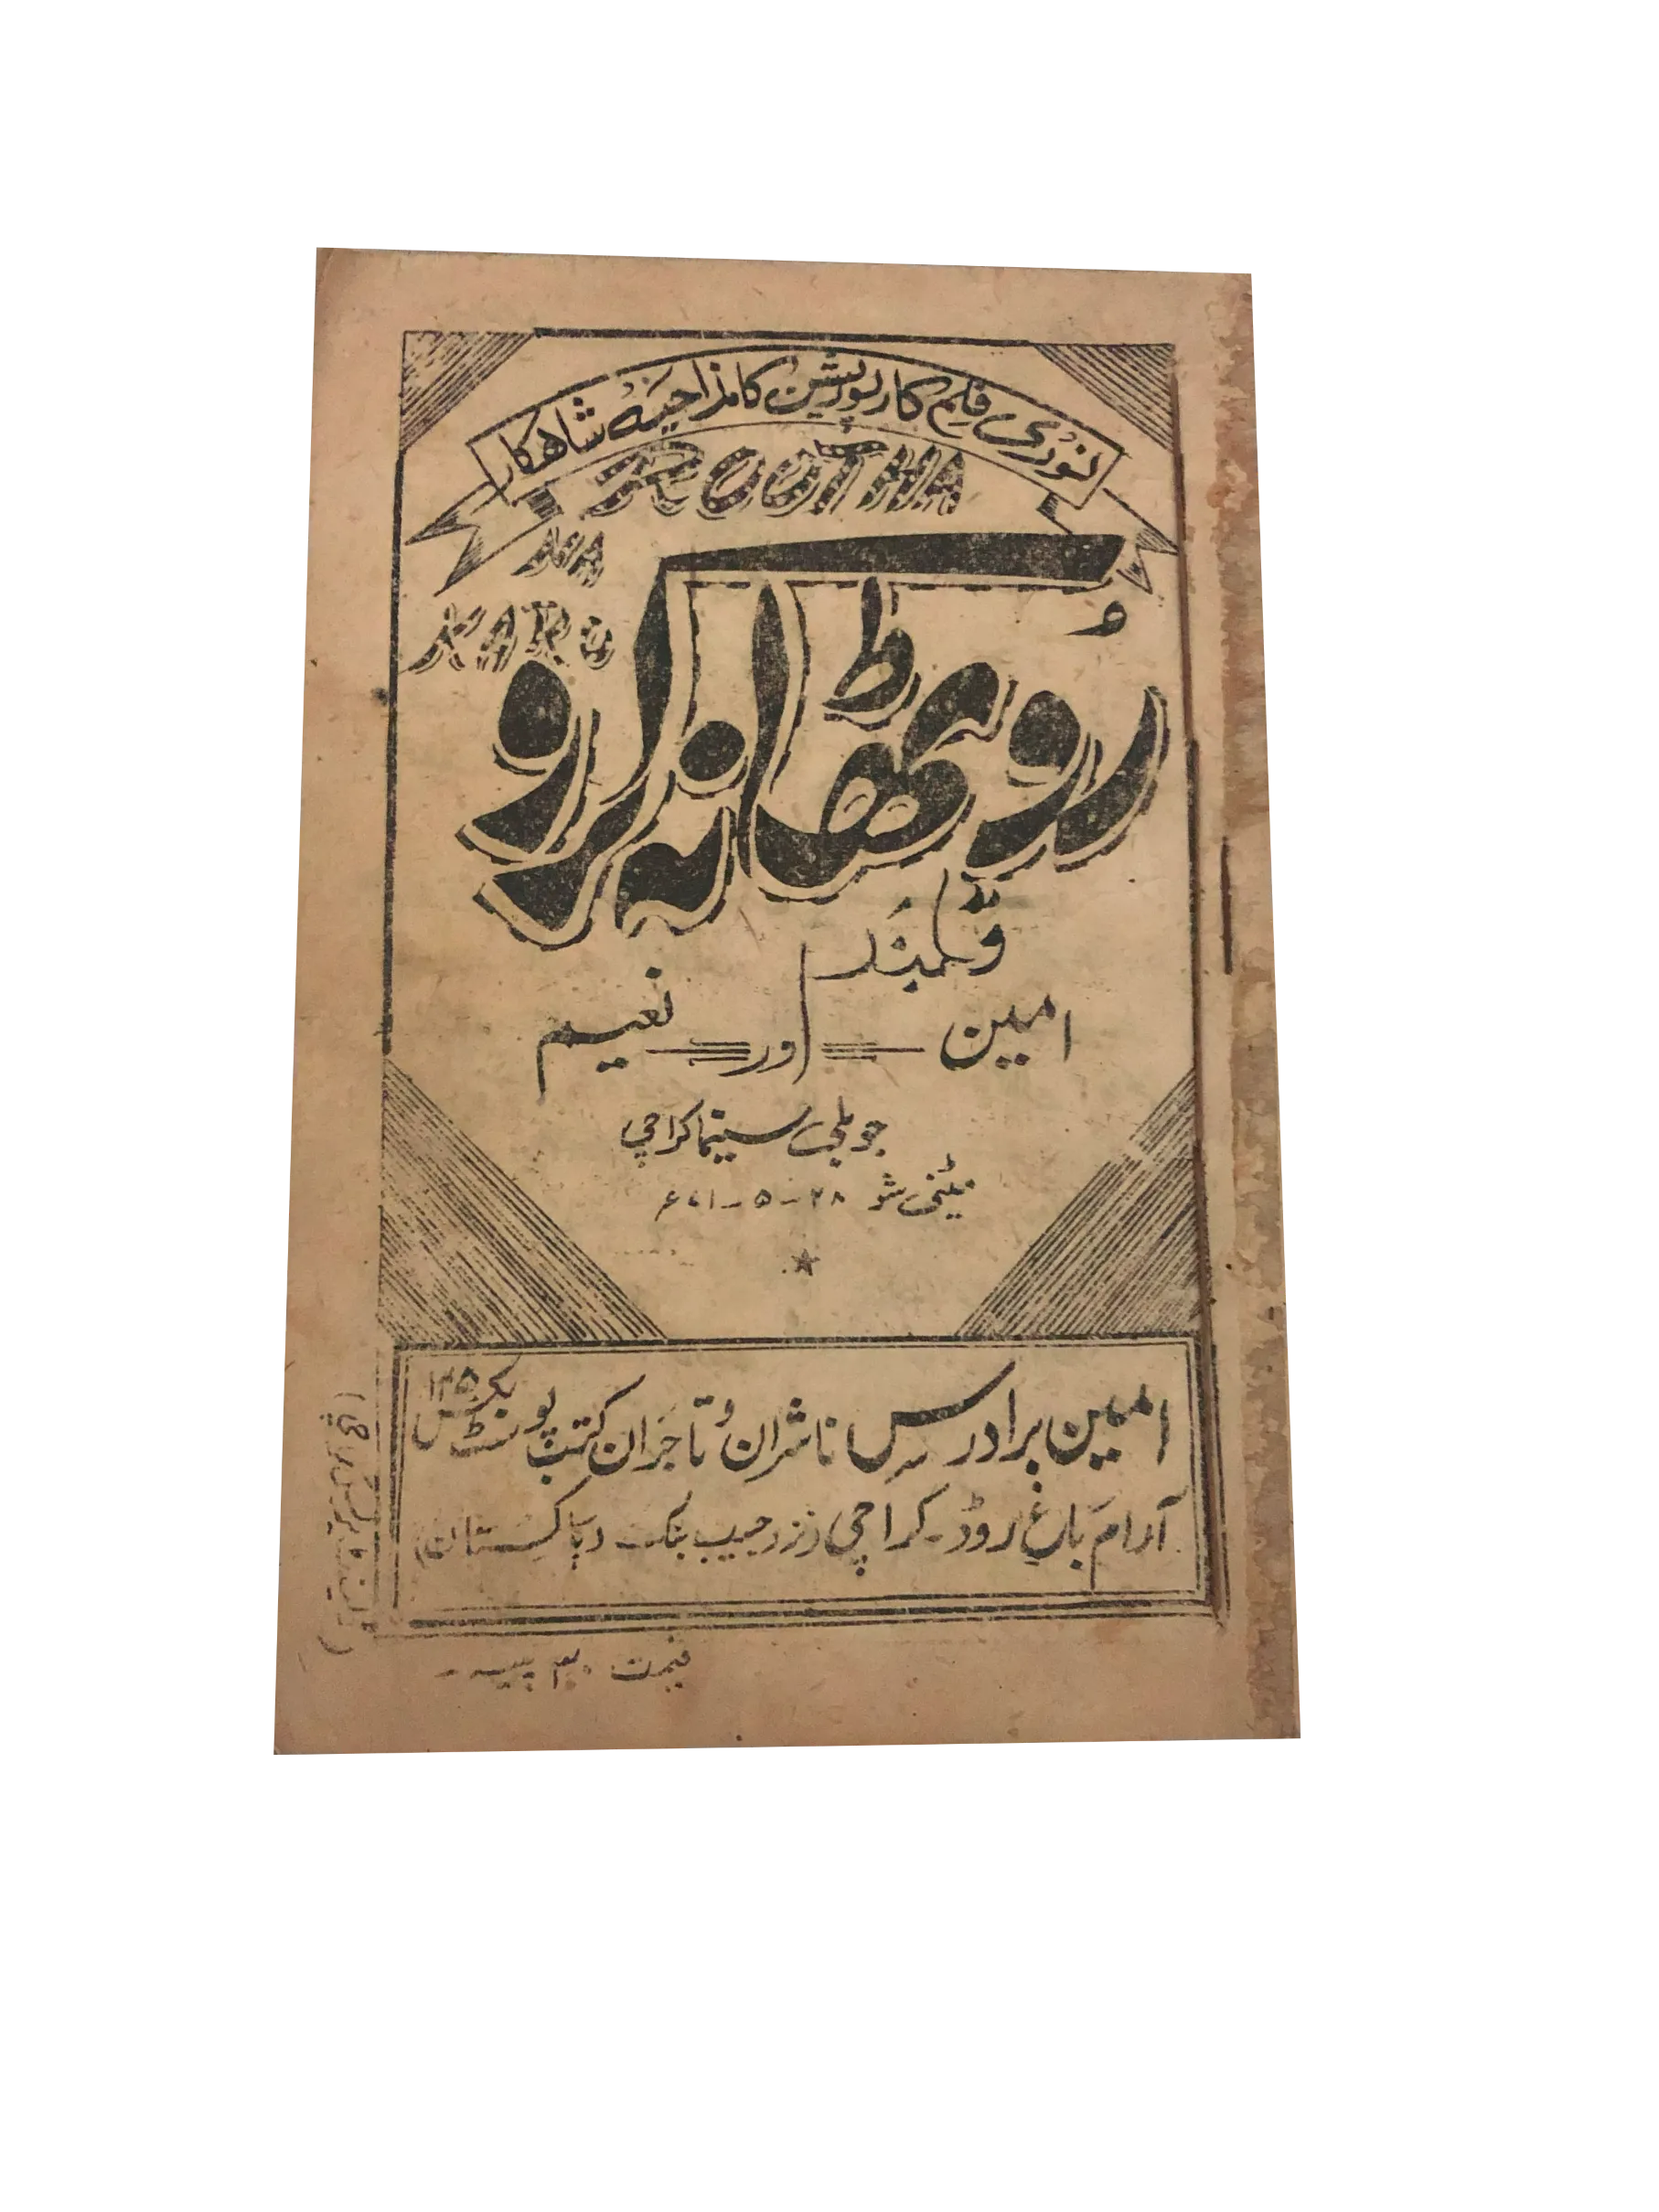 نوری فلم کارپوریشن کا مزاحیہ شاہکار
ROOTHA
NA
KARO
روٹھا نہ کرو
قلمبند
امین اور نعیم
جوبلی سینما کراچی
میٹنی شو ۲۸-۵-۷۱ء
امین برادرس ناشران و تاجران کتب پوسٹ بکس ۱۲۵
آرام باغ روڈ۔ کراچی (نزد حبیب بنک پاکستان)
قیمت ۳۰ پیسہ